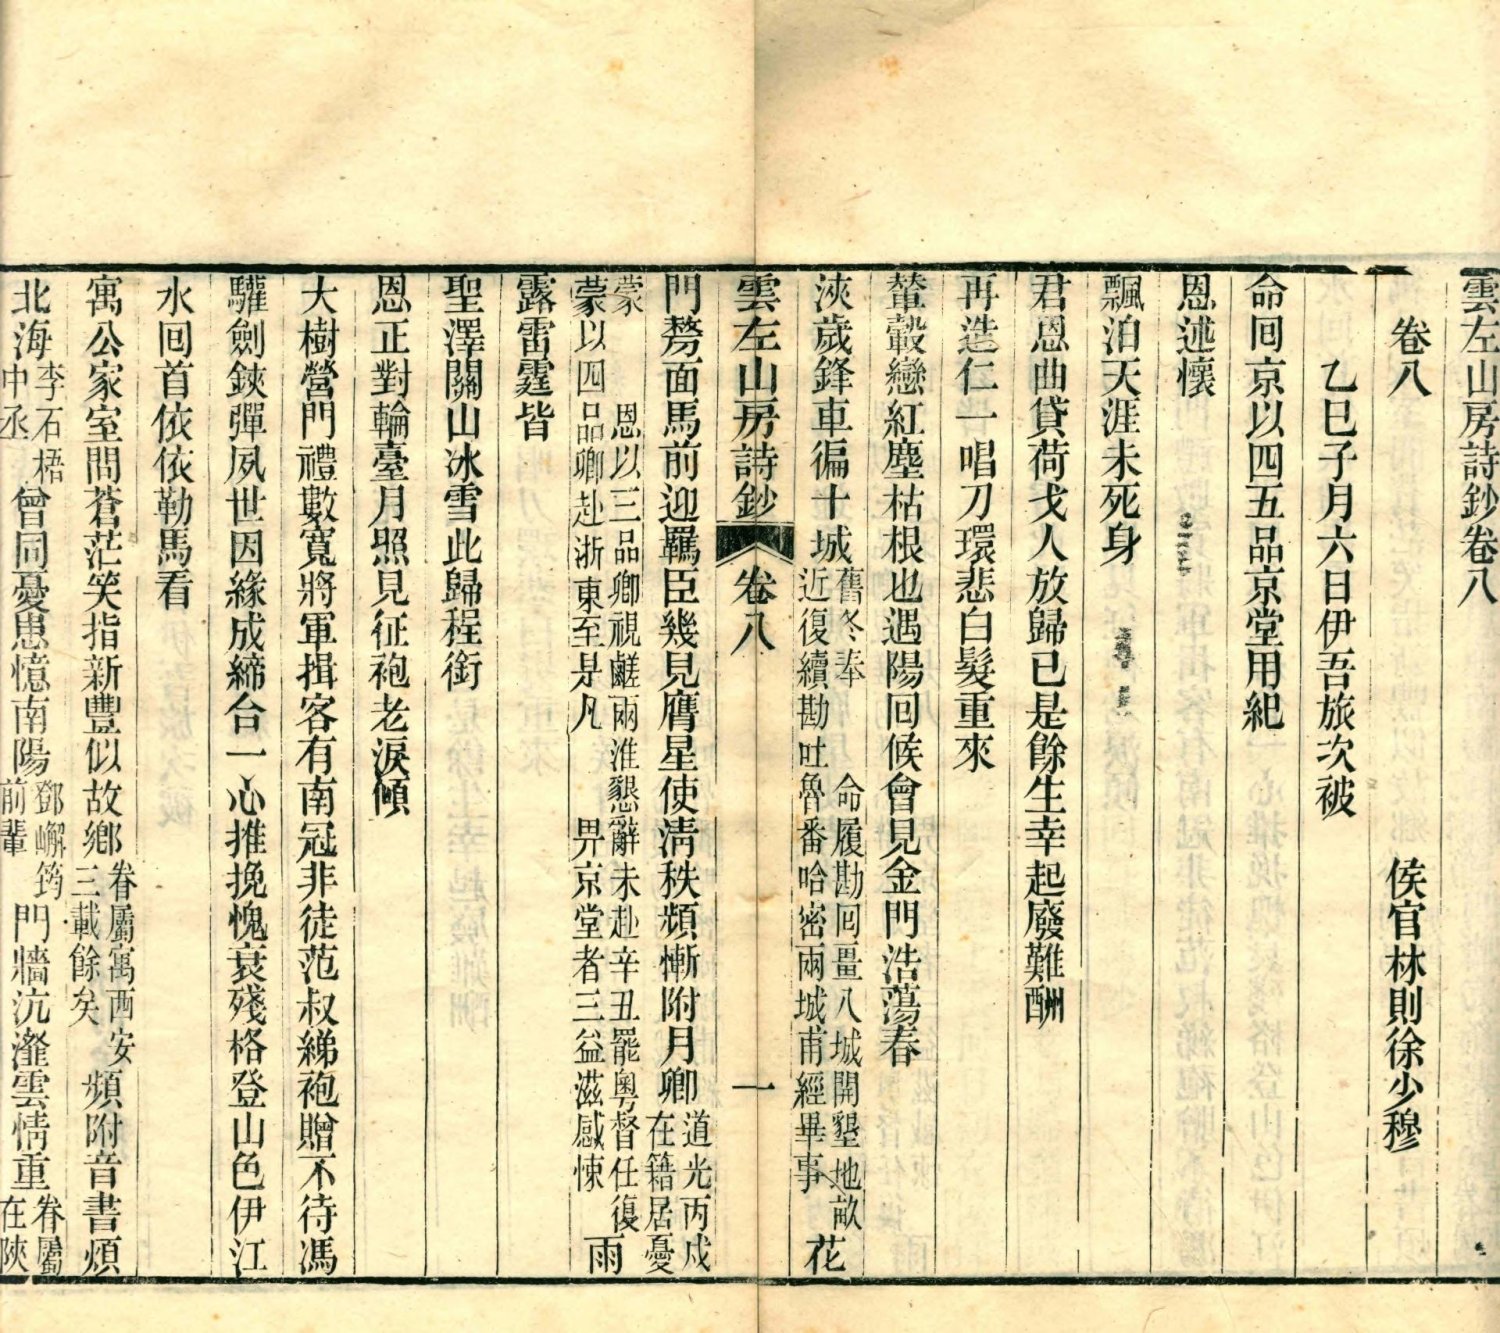 雲左山房詩鈔卷八
卷八
侯官林則徐少穆
乙巳子月六日伊吾旅次被
命回京以四五品京堂用紀
恩述懷
飄泊天涯未死身
君恩曲貸荷戈人放歸已是餘生幸起廢難酬
再造仁一唱刀環悲白髮重來
輦轂戀紅塵枯根也遇陽回候會見金門浩蕩春
浹歲鋒車徧十城
舊冬奉
命履勘回畺八城開墾地畝
近復續勘吐魯番哈密兩城甫經畢事
花
雲左山房詩鈔
卷八
一
門剺面馬前迎羈臣幾見膺星使淸秩頻慚附月卿
道光丙戌
在籍居憂
蒙
恩以三品卿視鹺兩淮懇辭未赴辛丑罷粵督任復
蒙以四品卿赴浙東至是凡
畀京堂者三益滋感悚
雨
露雷霆皆
聖澤關山冰雪此歸程銜
恩正對輪臺月照見征袍老淚傾
大樹營門禮數寬將軍揖客有南冠非徒范叔綈袍贈不待馮
驩劍鋏彈夙世因緣成締合一心推挽愧衰殘格登山色伊江
水回首依依勒馬看
寓公家室問蒼茫笑指新豐似故鄉
眷屬寓西安
三載餘矣
頻附音書煩
北海
李石梧
中丞
曾同憂患憶南陽
鄧嶰筠
前輩
門牆沆瀣雲情重
眷屬
在陝